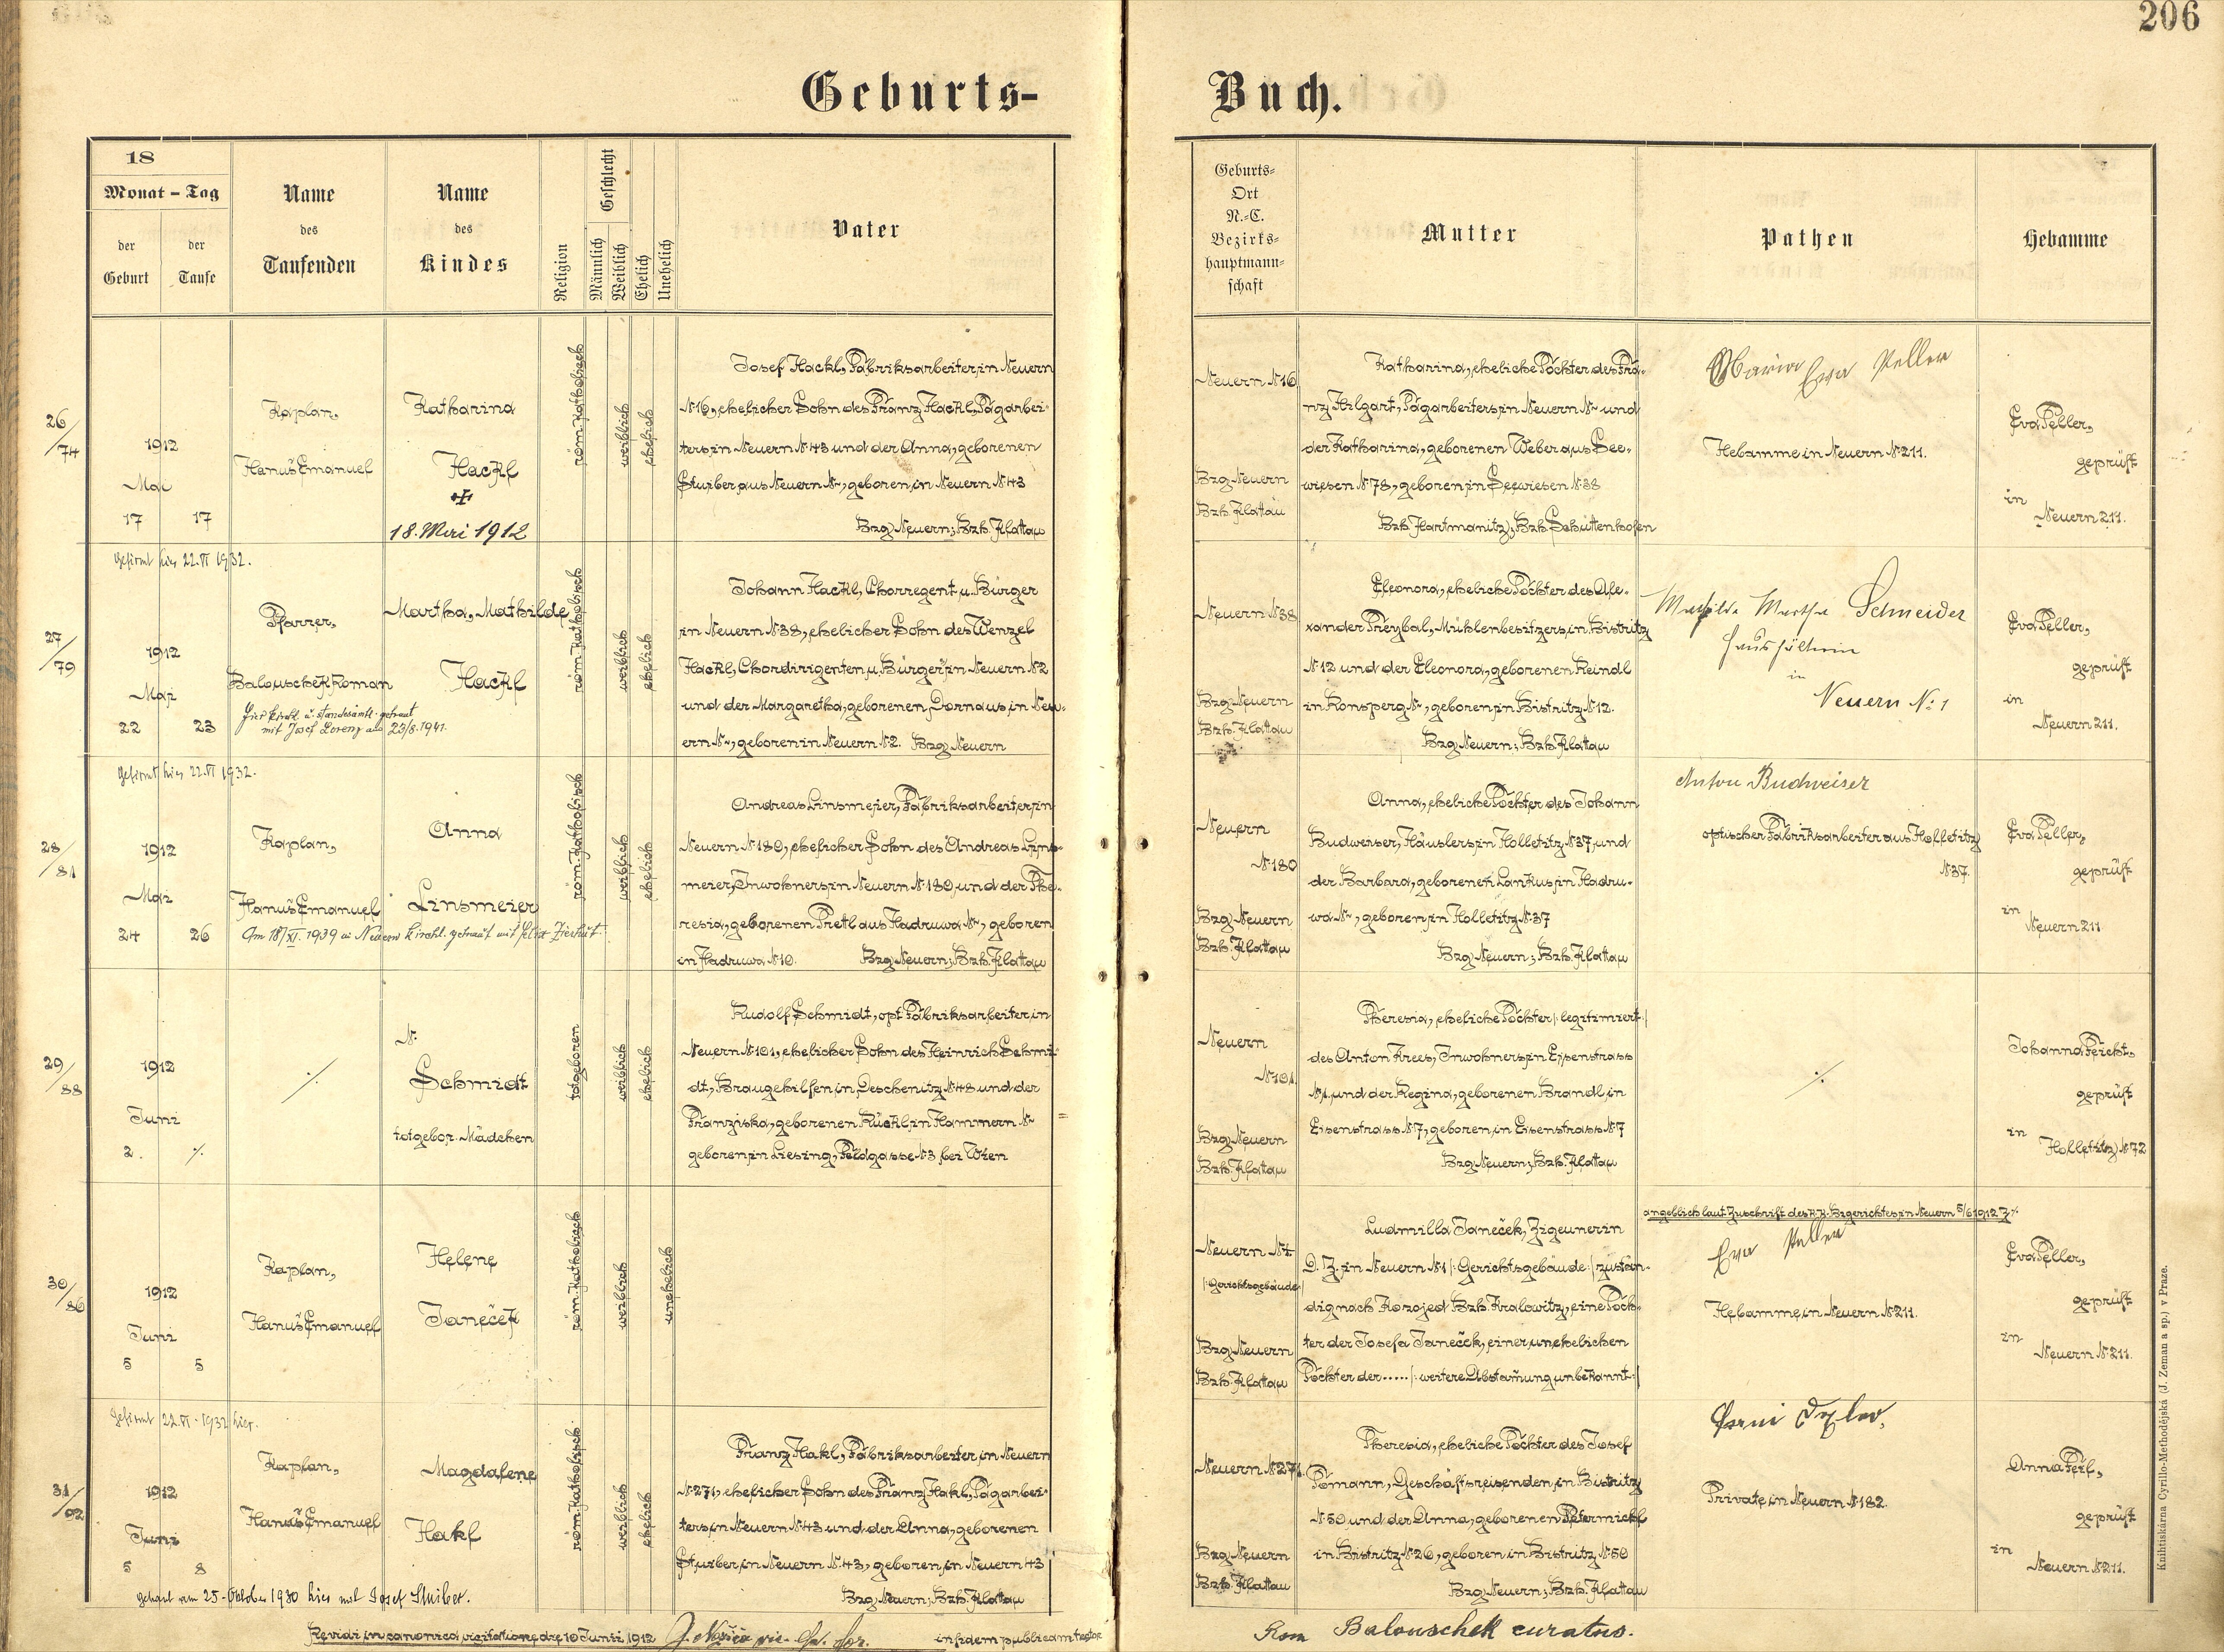 206
Geburts-
Buch.
18
Monat - Tag
der Geburt
der Taufe
Name des Taufenden
Name des Kindes
Religion
Geschlecht
Männlich
Weiblich
Ehelich
Unehelich
Vater
Geburts-
Ort
N.-C.
Bezirks-
hauptmann-
schaft
Mutter
Pathen
Hebamme
26/74
1912
Mai
17 17
Kaplan,
Hanuš Emanuel
Katharina
Hackl
18. Mai 1912
röm. katholisch
weiblich
ehelich
Josef Hackl, Fabriksarbeiter, in Neuern
N 16, ehelicher Sohn des Franz Hackl, Tagarbei-
ters, in Neuern N 43 und der Anna, geborenen
Stuiber, aus Neuern N~, geboren, in Neuern N 43
Bzg. Neuern; Bzh. Klattau
Neuern N 16
Bzg. Neuern
Bzh. Klattau
Katharina, eheliche Tochter des Fra-
nz Hilgart, Tagarbeiters, in Neuern N~ und
der Katharina, geborenen Weber aus See-
wiesen N 78, geboren, in Seewiesen N 38
Bzh. Hartmanitz; Bzh. Schüttenhofen
Maria Eva Peller
Hebamme in Neuern N 211.
Eva Peller,
geprüft
in
Neuern 211.
gefirmt hier 22.VI 1932.
27/79
1912
Mai
22 23
Pfarrer,
Balouschek Roman
Martha, Mathilde
Hackl
Hier kirchl. u. standesamtl. getraut
mit Josef Lorenz am 23/8. 1941.
röm. katholisch
weiblich
ehelich
Johann Hackl, Chorregent u. Bürger
in Neuern N 38, ehelicher Sohn des Wenzel
Hackl, Chordirigenten u. Bürger, in Neuern N 2
und der Margaretha, geborenen Dornaus, in Neu-
ern N~, geboren in Neuern N 2. Bzg. Neuern
Neuern N 38
Bzg. Neuern
Bzh. Klattau
Eleonora, eheliche Tochter des Ale-
xander Preybal, Mühlenbesitzers, in Bistritz
N 12 und der Eleonora, geborenen Reindl
in Ronsperg N~, geboren, in Bistritz N 12.
Bzg. Neuern; Bzh. Klattau
Mathilde Martha Schneider
Haushälterin
in
Neuern N: 1
Eva Peller,
geprüft
in
Neuern 211.
gefirmt hier 22.VI 1932.
28/81
1912
Mai
24 26
Kaplan,
Hanuš Emanuel
Anna
Linsmeier
Am 18/XI. 1939 in Neuern kirchl. getraut mit Felix
röm. katholisch
weiblich
ehelich
Andreas Linsmeier, Fabriksarbeiter, in
Neuern N 180, ehelicher Sohn des Andreas Lins-
meier, Inwohners, in Neuern N 180, und der The-
resia, geborenen Pretl aus Hadruwa N~, geboren
in Hadruwa N 10. Bzg. Neuern; Bzh. Klattau
Neuern
N 180
Bzg. Neuern
Bzh. Klattau
Anna, eheliche Tochter des Johann
Budweiser, Häuslers, in Holletitz N 37, und
der Barbara, geborenen Lankus, in Hadru-
wa N~, geboren, in Holletitz N 37
Bzg. Neuern; Bzh. Klattau
Anton Budweiser
optischer Fabriksarbeiter aus Holletitz
N 37.
Eva Peller,
geprüft
in
Neuern 211
29/88
1912
Juni
2. ·/.
·/.
N.
Schmidt
totgebor. Mädchen
totgeboren
weiblich
ehelich
Rudolf Schmidt, opt. Fabriksarbeiter, in
Neuern N 101, ehelicher Sohn des Heinrich Schmi-
dt, Braugehilfen, in Deschenitz N 48 und der
Franziska, geborenen Rückl, in Hammern N~
geboren, in Liesing, Feldgasse N 3 bei Wien
Neuern
N 101.
Bzg. Neuern
Bzh. Klattau
Theresia, eheliche Tochter |: legitimiert :|
des Anton Frees, Inwohners, in Eisenstrass
N 1. und der Regina, geborenen Brandl, in
Eisenstrass N 7, geboren, in Eisenstrass N 7
Bzg. Neuern; Bzh. Klattau
·/.
Johanna Feicht,
geprüft
in
Holletitz N 72
30/86
1912
Juni
5 5
Kaplan,
Hanuš Emanuel
Helene
Janeček
röm. katholisch
weiblich
unehelich
Neuern N 1
|: Gerichtsgebäude :|
Bzg. Neuern
Bzh. Klattau
Ludmilla Janeček, Zigeunerin
D. Z. in Neuern N 1 |: Gerichtsgebäude :| zustän-
dig nach Kozojed Bzh. Kralowitz, eine Toch-
ter der Josefa Janeček, einer unehelichen
Tochter der ..... |: weitere Abstam̃ung unbekannt :|
angeblich laut Zuschrift des k.k. Bzgerichtes, in Neuern 5/6 1912 Z.
Eva Peller
Hebamme, in Neuern N 211.
Eva Peller,
geprüft
in
Neuern N 211.
gefirmt 22.VI. 1932 hier.
31/92
1912
Juni
5 8
Kaplan,
Hanuš Emanuel
Magdalene
Hakl
getraut am 25. Oktober 1930 hier mit Josef Stuiber.
röm. katholisch.
weiblich
ehelich
Franz Hakl, Fabriksarbeiter, in Neuern
N 271, ehelicher Sohn des Franz Hakl, Tagarbei-
ters, in Neuern N 43 und der Anna, geborenen
Stuiber, in Neuern N 43, geboren, in Neuern 43
Bzg. Neuern; Bzh. Klattau
Neuern N 271.
Bzg. Neuern
Bzh. Klattau
Theresia, eheliche Tochter des Josef
Tomann, Geschäftsreisenden, in Bistritz
N 50 und der Anna, geborenen Petermickl
in Bistritz N 26, geboren in Bistritz N 50
Bzg. Neuern; Bzh. Klattau
Private, in Neuern N 182.
Anna Feil,
geprüft
in
Neuern N 211.
Revidi in canonica visitatione die 10 Junii 1912
in fidem publicam testor
Rom Balouschek curatus.
Knihtiskárna Cyrillo-Methodějská (J. Zeman a sp.) v Praze.